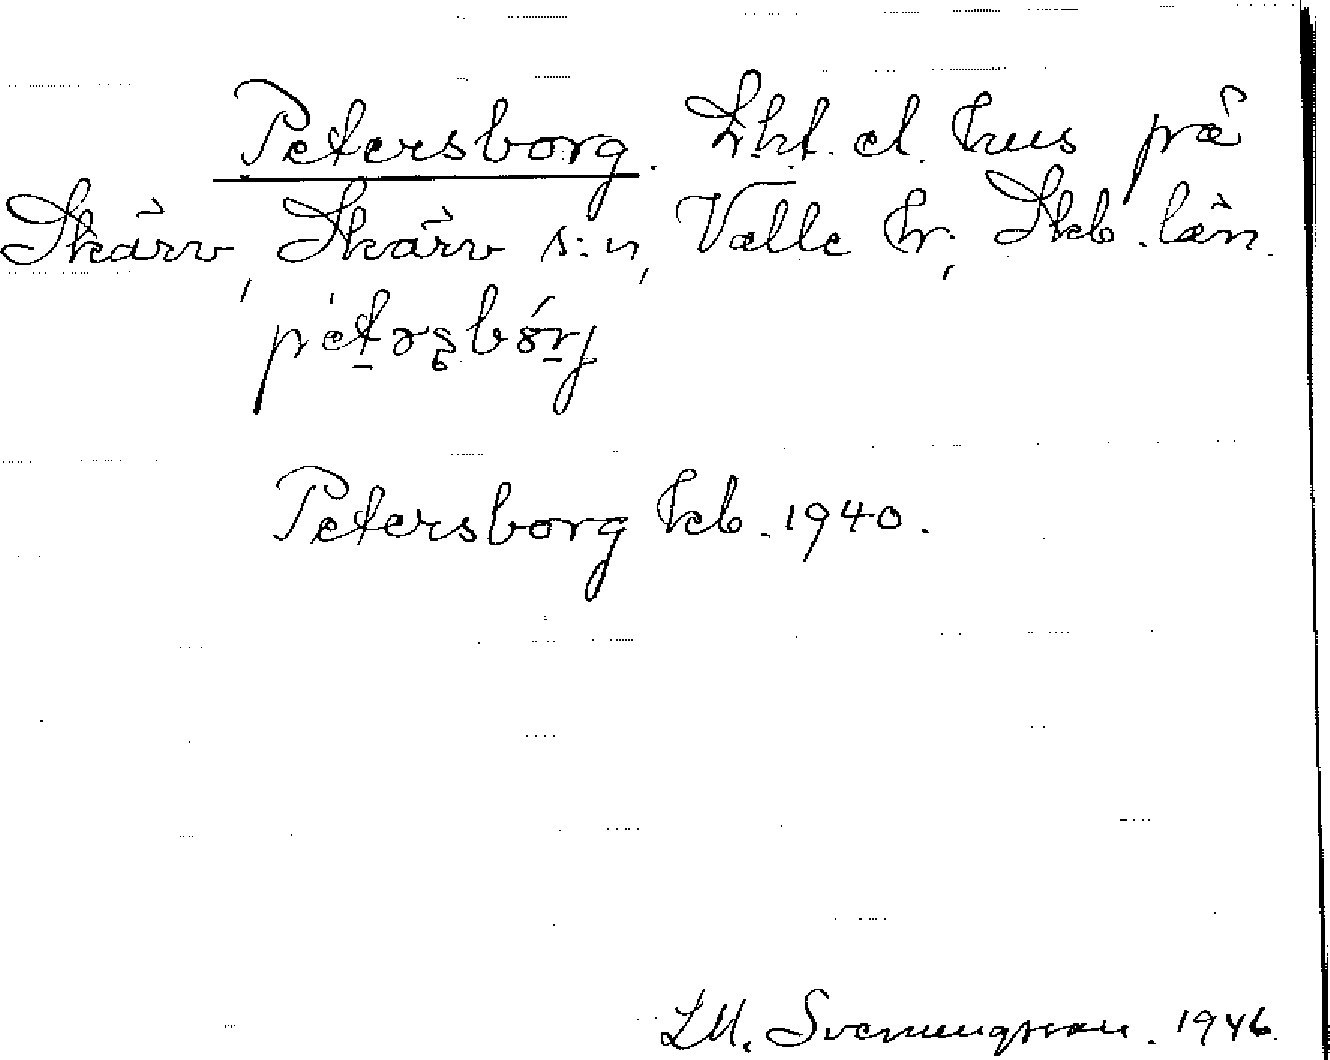 Petersborg. Lht. el. hus på
Skärv, Skärv s:n, Valle hr, Skb. län.
Petersborg kb. 1940.
LM. Svenungsson. 1946.